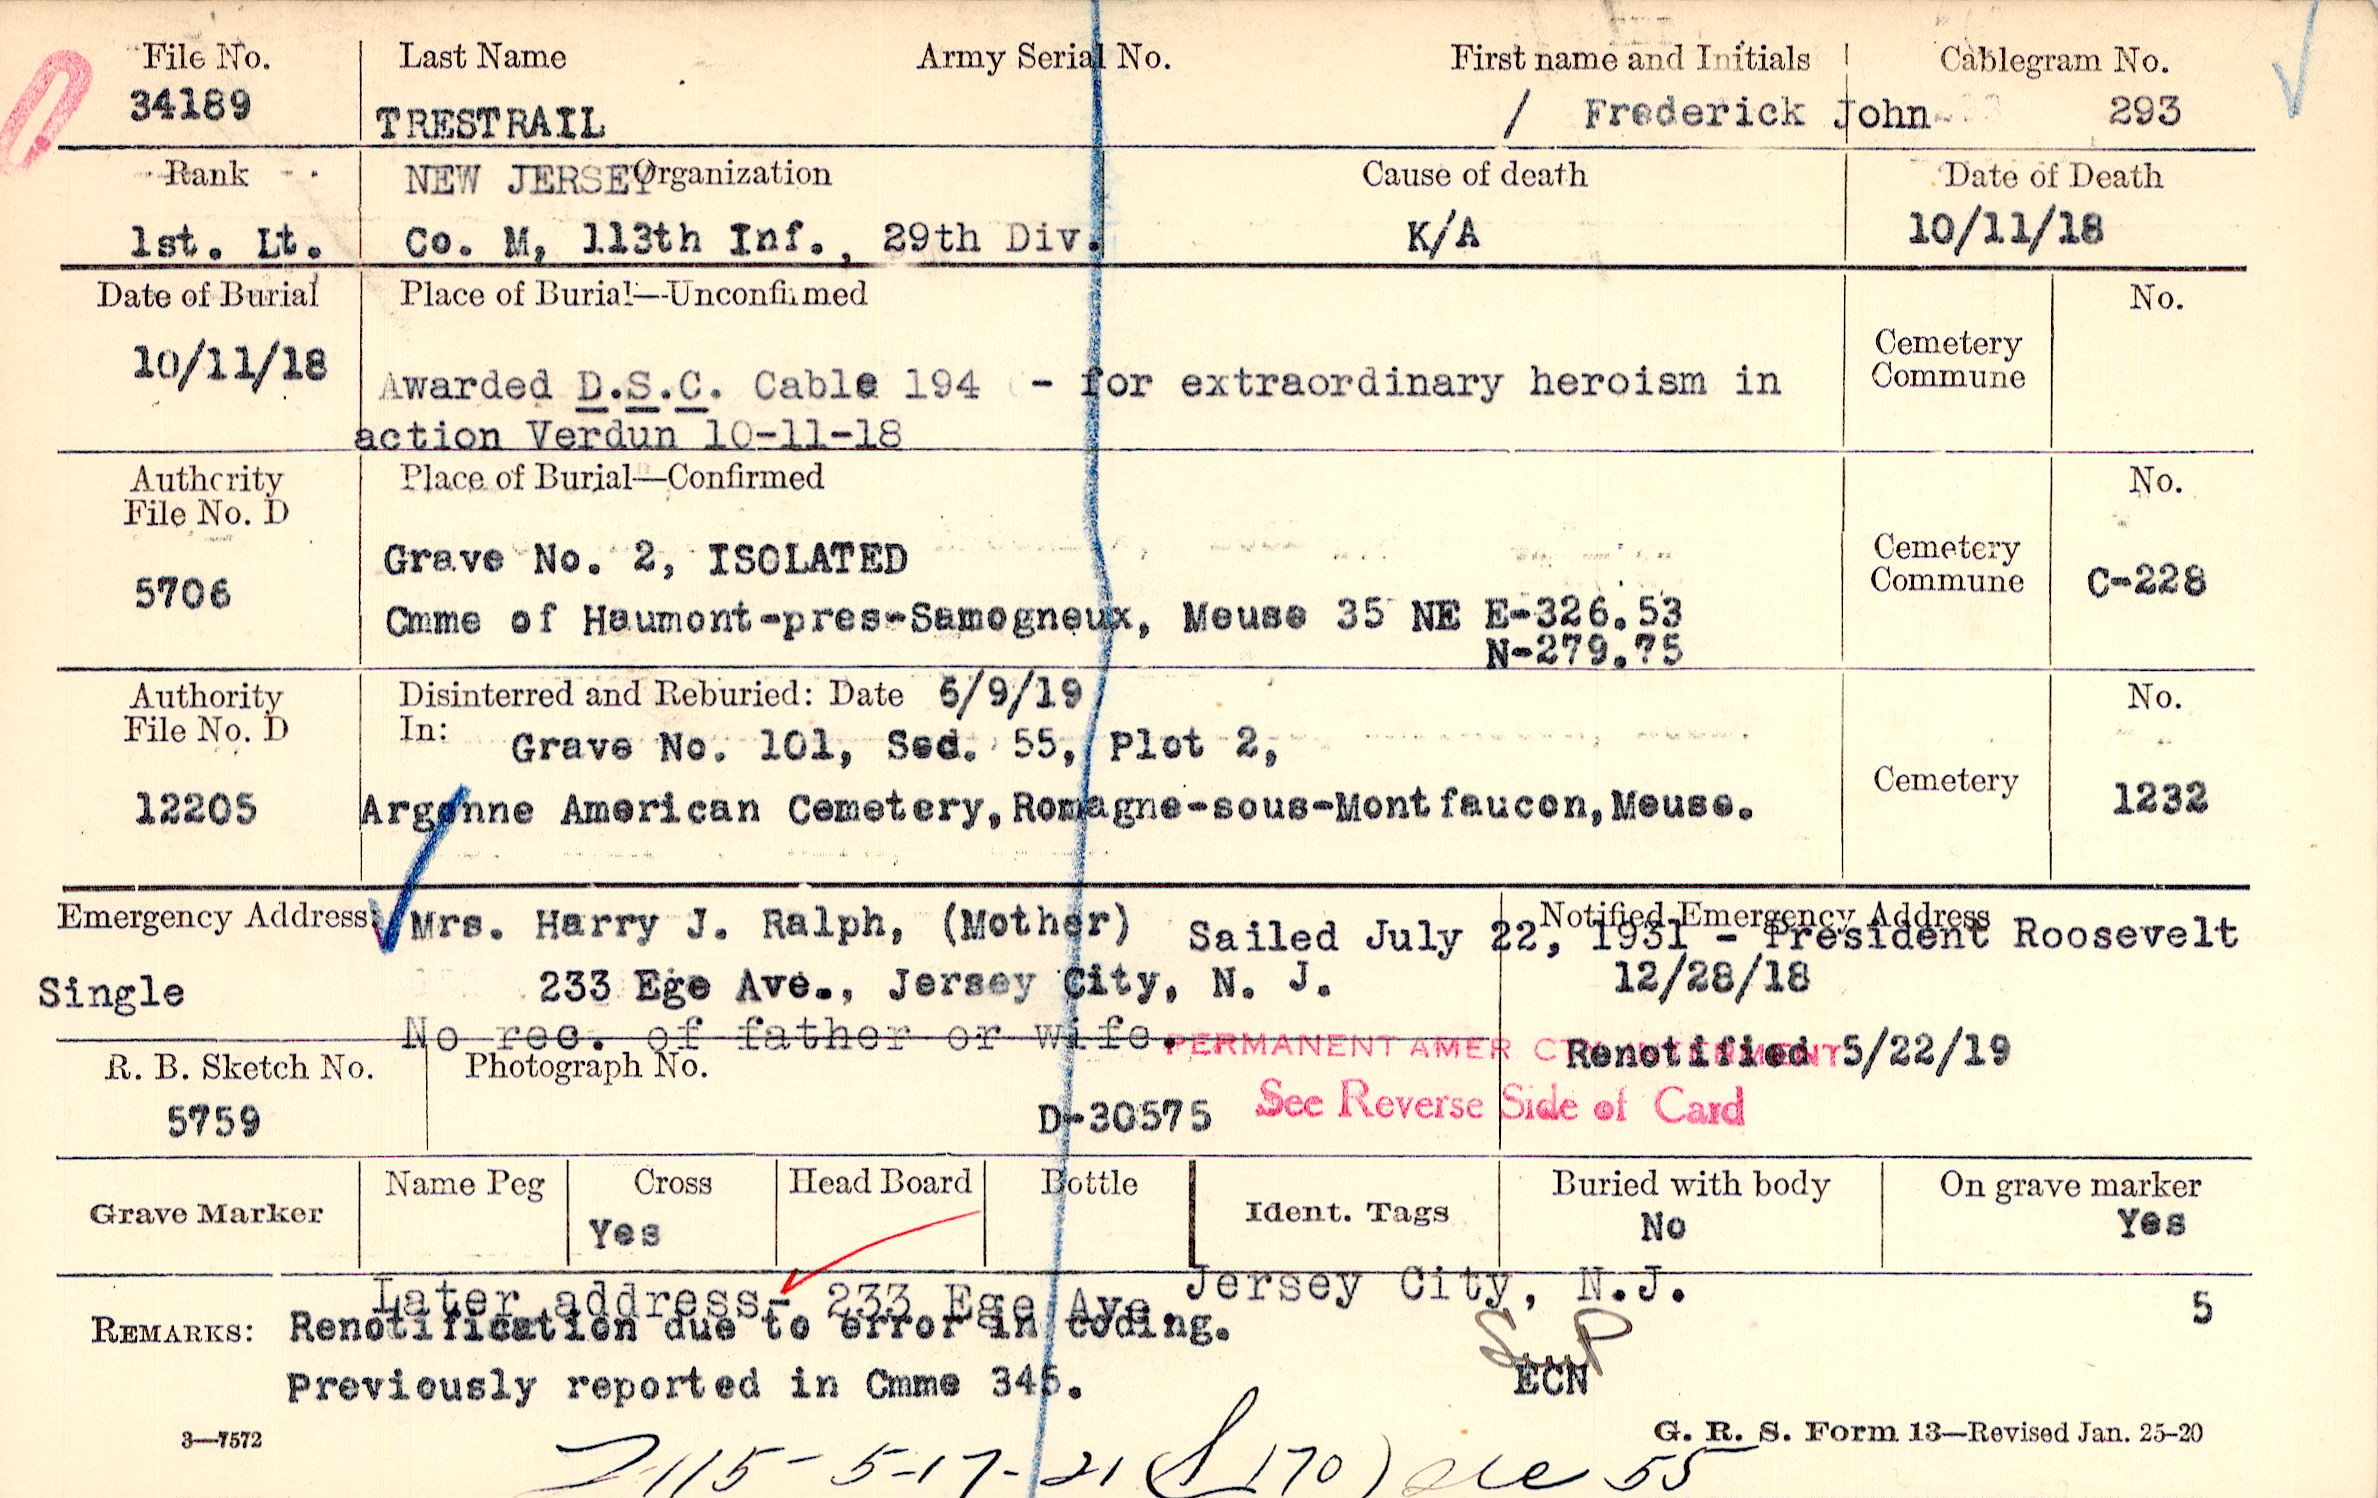 File No. Last Name Army Serial No. First name and Initials Cablegram No.
34189 TRESTRAIL / Frederick John 293
Rank NEW JERSEY Organization Cause of death Date of Death
1st. Lt. Co. M, 113th Inf., 29th Div. K/A 10/11/18
Date of Burial Place of Burial—Unconfirmed No.
10/11/18 Cemetery
Awarded D.S.C. Cable 194 - for extraordinary heroism in Commune
action Verdun 10-11-18
Authority Place of Burial—Confirmed No.
File No. D
Grave No. 2, ISOLATED Cemetery
5706 Commune C-228
Cmme of Haumont-pres-Samogneux, Meuse 35 NE E-326.53
N-279.75
Authority Disinterred and Reburied: Date 6/9/19 No.
File No. D In: Grave No. 101, Sed. 55, Plot 2,
Cemetery
12205 Argonne American Cemetery, Romagne-sous-Montfaucon, Meuse. 1232
Emergency Address Mrs. Harry J. Ralph, (Mother) Notified Emergency Address
Sailed July 22, 1931 - President Roosevelt
Single 233 Ege Ave., Jersey City, N. J. 12/28/18
No rec. of father or wife. PERMANENT AMER Renotified 5/22/19
R. B. Sketch No. Photograph No.
5759 D-30575 See Reverse Side of Card
Grave Marker Name Peg Cross Head Board Bottle Ident. Tags Buried with body On grave marker
Yes No Yes
Later address- 233 Ege Ave. Jersey City, N.J. 5
REMARKS: Renotification due to error in coding.
Previously reported in Cmme 345. ECN
3—7572 G. R. S. Form 13—Revised Jan. 25-20
5-17-21 170) 55